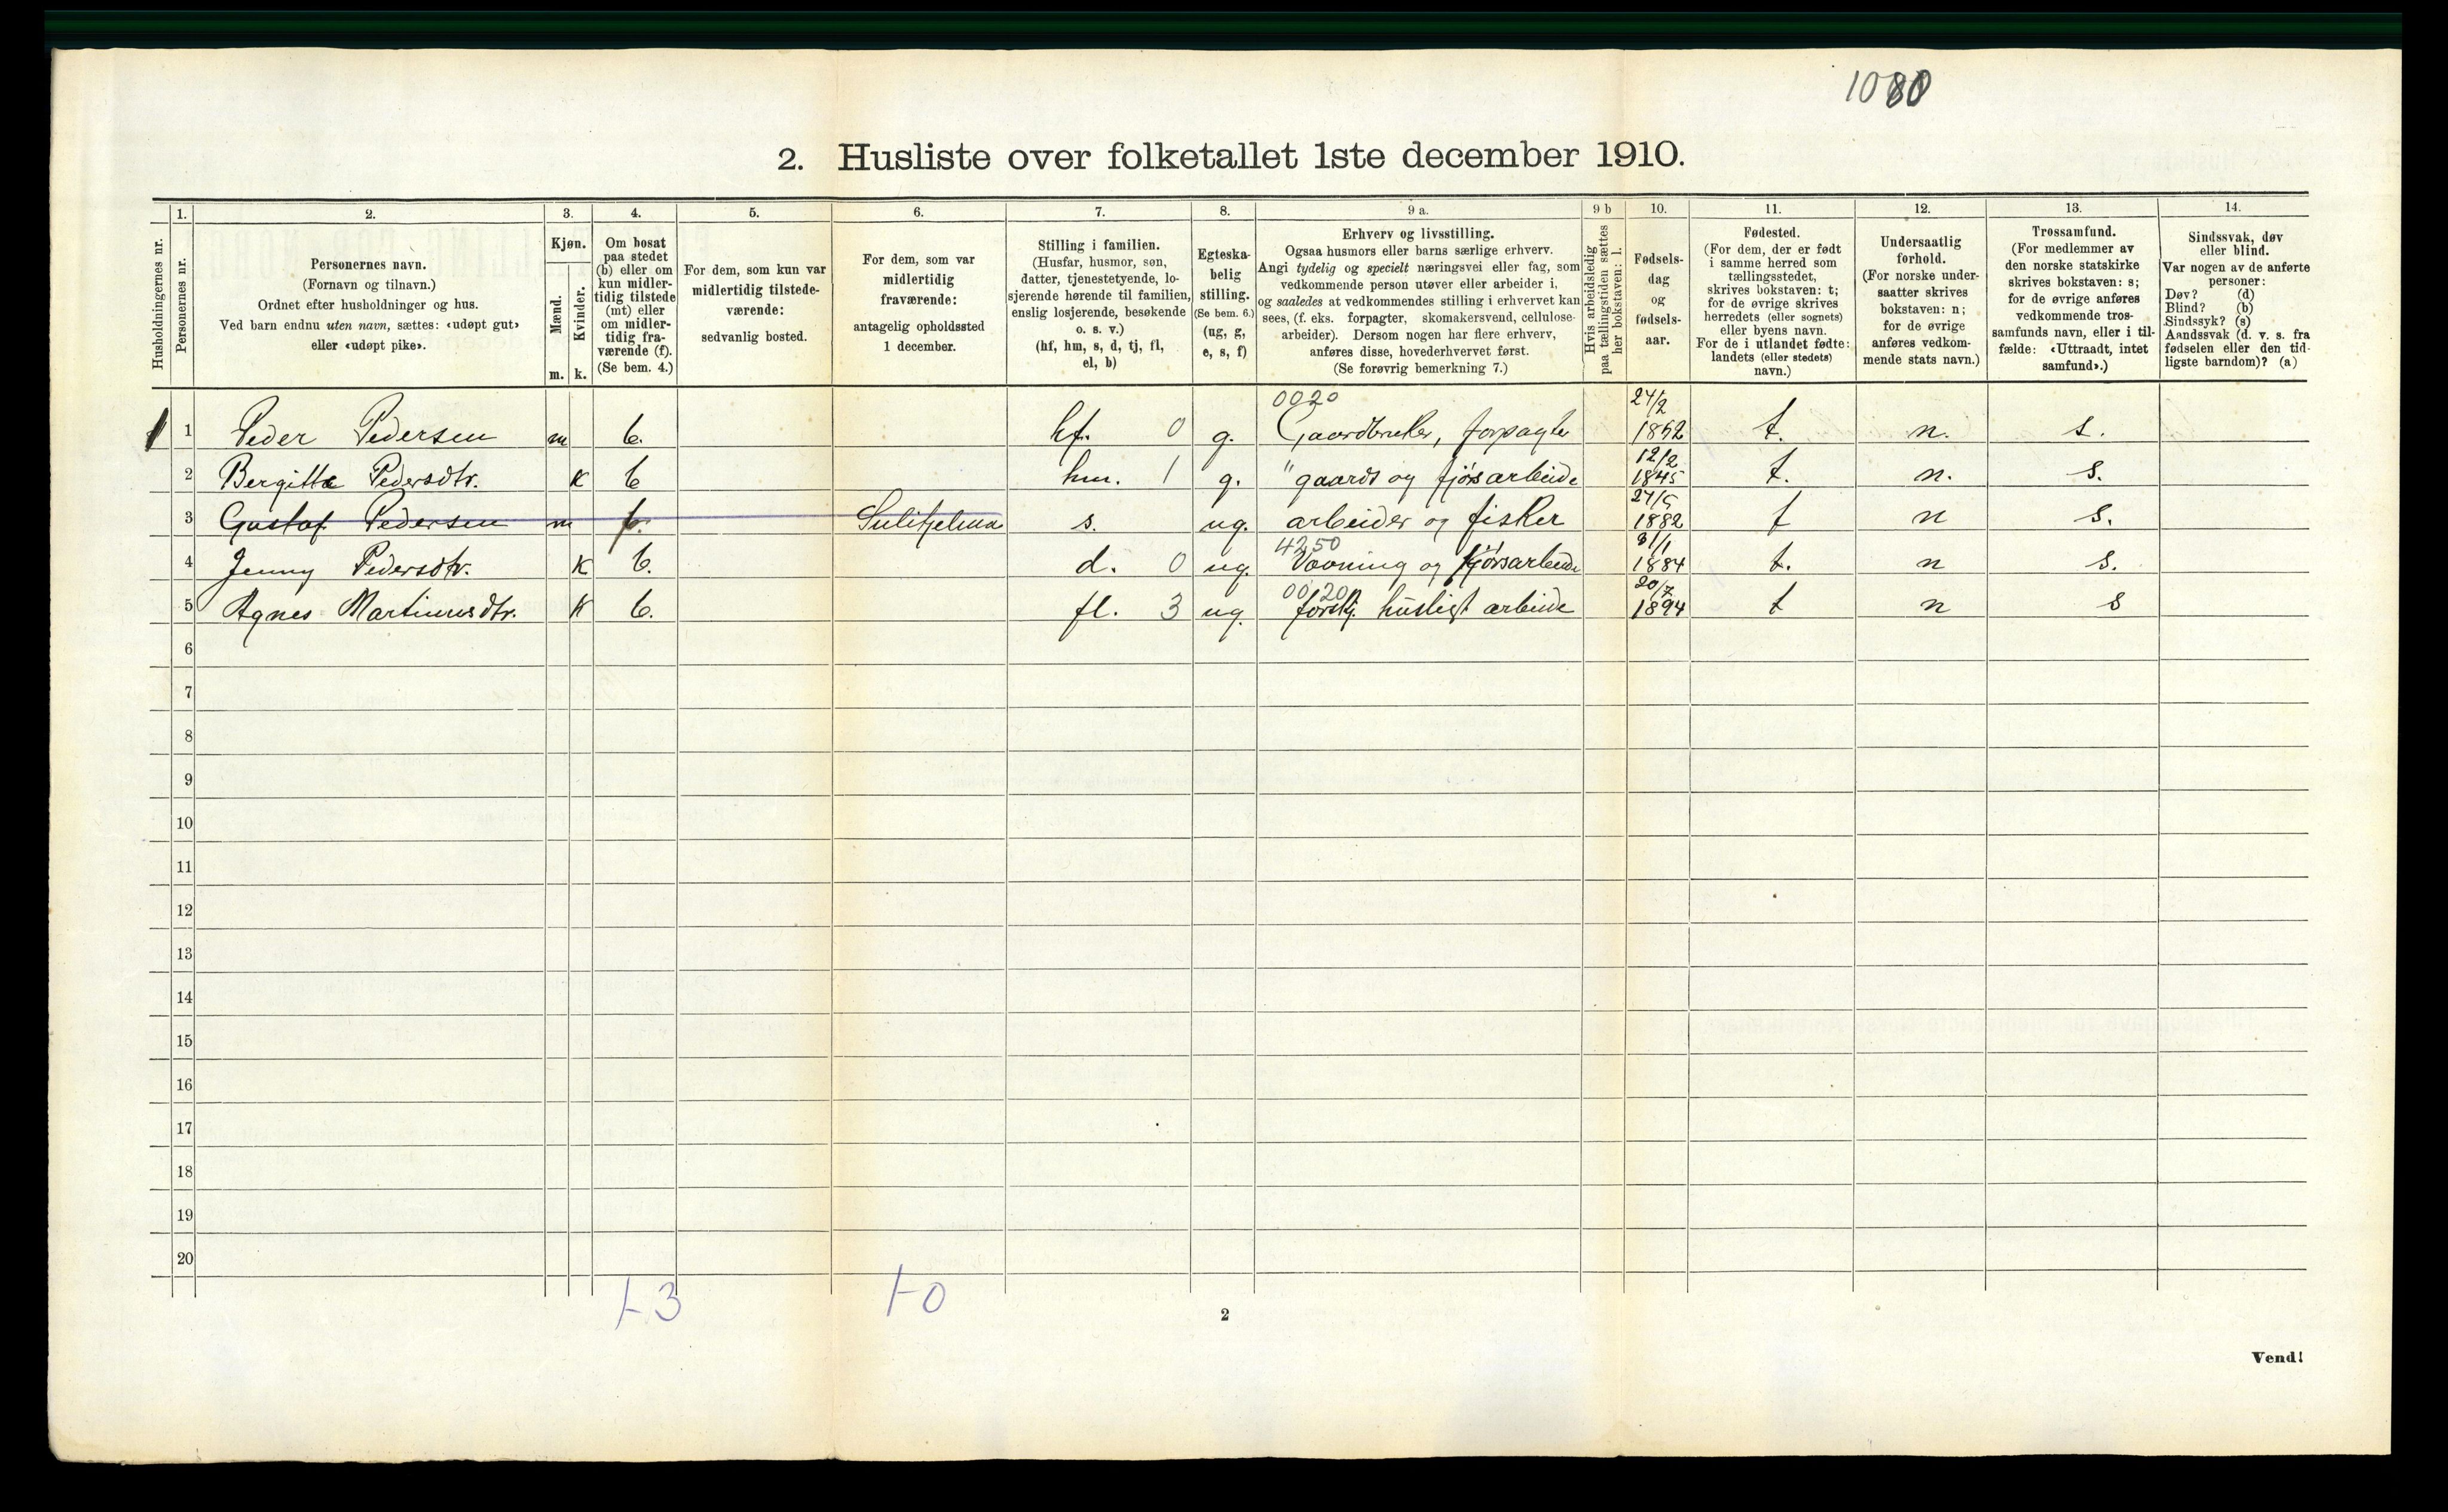 1080
2. Husliste over folketallet 1ste december 1910.
Husholdningernes nr.
1. Personernes nr.
2. Personernes navn.
(Fornavn og tilnavn.)
Ordnet efter husholdninger og hus.
Ved barn endnu uten navn, sættes: «udøpt gut»
eller «udøpt pike».
3. Kjøn.
Mænd.
Kvinder.
m. k.
4. Om bosat
paa stedet
(b) eller om
kun midler-
tidig tilstede
(mt) eller
om midler-
tidig fra-
værende (f).
(Se bem. 4.)
5. For dem, som kun var
midlertidig tilstede-
værende:
sedvanlig bosted.
6. For dem, som var
midlertidig
fraværende:
antagelig opholdssted
1 december.
7. Stilling i familien.
(Husfar, husmor, søn,
datter, tjenestetyende, lo-
sjerende hørende til familien,
enslig losjerende, besøkende
o. s. v.)
(hf, hm, s, d, tj, fl,
el, b)
8. Egteska-
belig
stilling.
(Se bem. 6.)
(ug, g,
e, s, f)
9 a. Erhverv og livsstilling.
Ogsaa husmors eller barns særlige erhverv.
Angi tydelig og specielt næringsvei eller fag, som
vedkommende person utøver eller arbeider i,
og saaledes at vedkommendes stilling i erhvervet kan
sees, (f. eks. forpagter, skomakersvend, cellulose-
arbeider). Dersom nogen har flere erhverv,
anføres disse, hovederhvervet først.
(Se forøvrig bemerkning 7.)
9 b Hvis arbeidsledig
paa tællingstiden sættes
her bokstaven: l.
10. Fødsels-
dag
og
fødsels-
aar.
11. Fødested.
(For dem, der er født
i samme herred som
tællingsstedet,
skrives bokstaven: t;
for de øvrige skrives
herredets (eller sognets)
eller byens navn.
For de i utlandet fødte:
landets (eller stedets)
navn.)
12. Undersaatlig
forhold.
(For norske under-
saatter skrives
bokstaven: n;
for de øvrige
anføres vedkom-
mende stats navn.)
13. Trossamfund.
(For medlemmer av
den norske statskirke
skrives bokstaven: s;
for de øvrige anføres
vedkommende tros-
samfunds navn, eller i til-
fælde: «Uttraadt, intet
samfund».)
14. Sindssvak, døv
eller blind.
Var nogen av de anførte
personer:
Døv? (d)
Blind? (b)
Sindssyk? (s)
Aandssvak (d. v. s. fra
fødselen eller den tid-
ligste barndom)? (a)
0020 24/2
1 1 Peder Pedersen m b. hf. 0 g. Gaardbruker, forpagter 1852 t. n. s.
12/2
2 Bergitte Pedersdtr. k b hm. 1 g. " gaards og fjøsarbeide 1845 t. n. s.
24/5
3 Gustaf Pedersen m f. Sulitjelma s. ug. arbeider og fisker 1882 t n s.
4250 31/1
4 Jenny Pedersdtr. k b. d. 0 ug. Vævning og fjøsarbeide 1884 t. n s.
0020 20/7
5 Agnes Martinusdtr. k b. fl. 3 ug. forskj. husligt arbeide 1894 t n s
6
7
8
9
10
11
12
13
14
15
16
17
18
19
20
1-3 1-0
2
Vend!